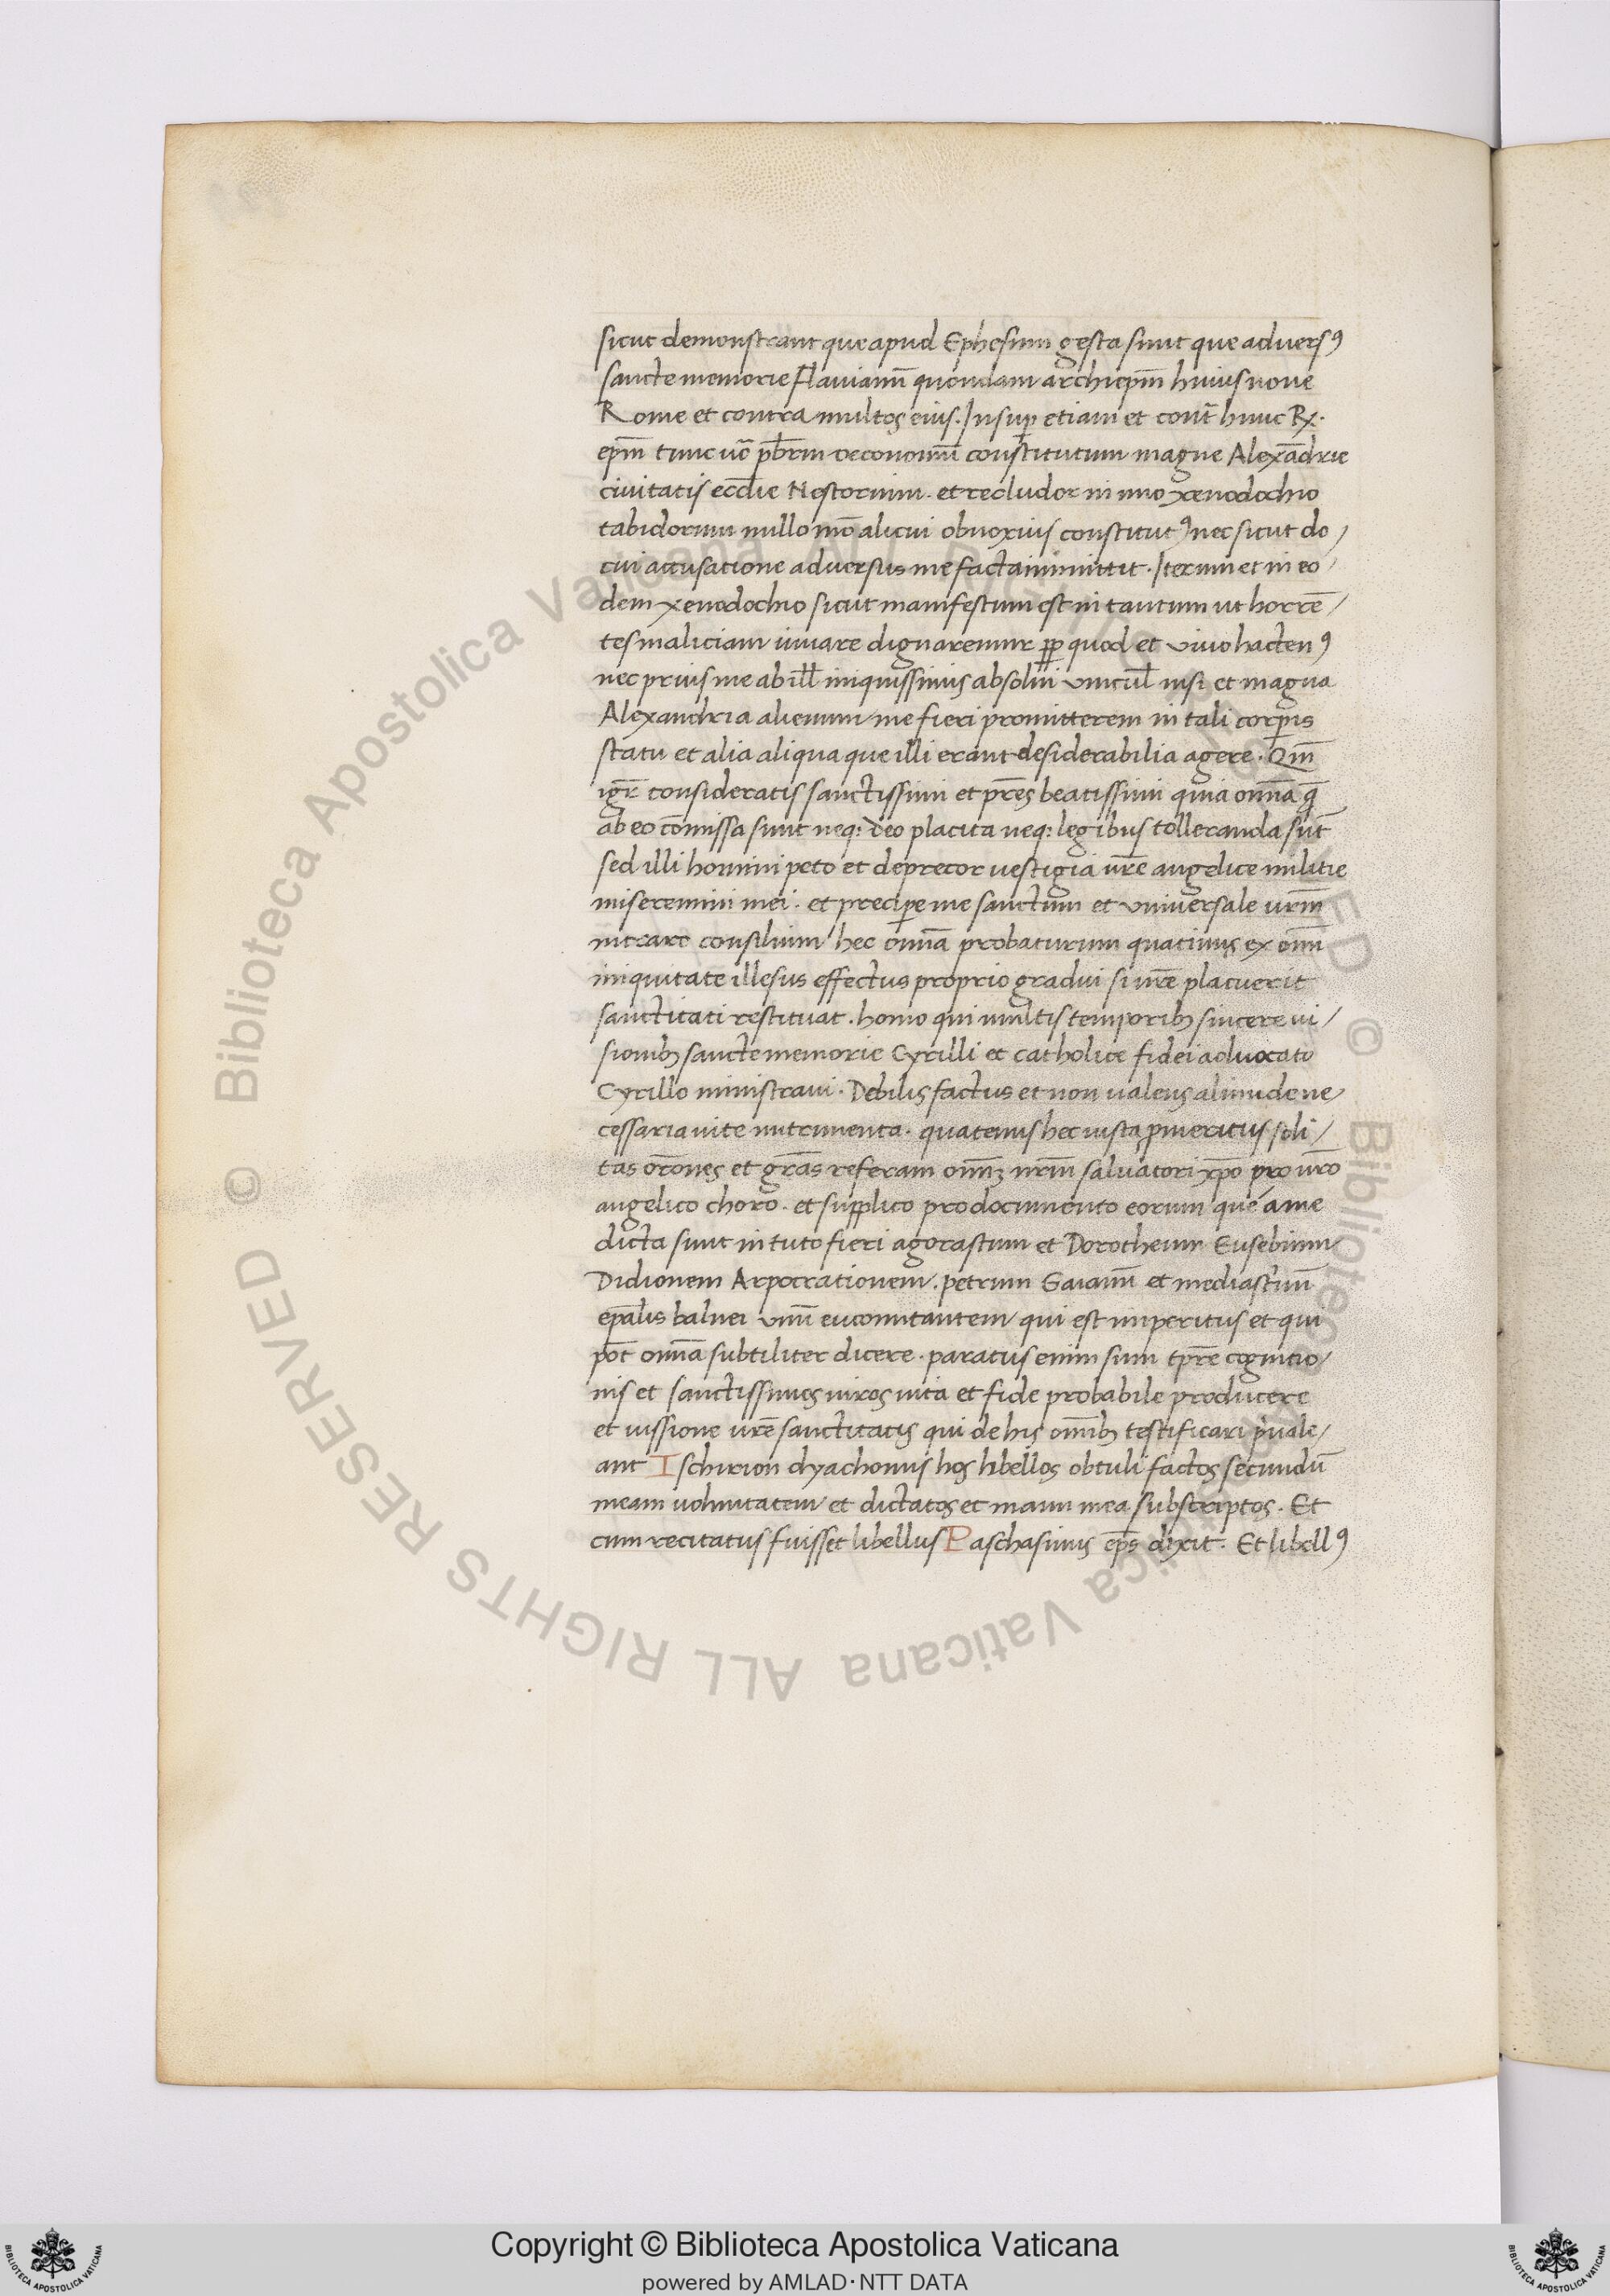 sicut demonstrant que apud Ephesum gesta sunt que adversꝯ
sancte memorie Flavianū quondam archiepm̄ huius nove
Rome et contra multos eius. Insuꝑ etiam et cont̄ hunc Rx.
epm̄ tunc uō pb̄rm oeconomū constitutum magne Alexādrie
civitatis eccl̄ie Nestorium. et recludor in uno xenodochio
tabidorum nullo mō alicui obnoxius constitutꝯ nec sicut do/
cui accusatione adversus me facta inmittit. Iterum et in eo/
dem xenodochio sicut manifestum est in tantum ut horrē/
tes maliciam iuvare dignaremur ꝓp quod et vivo hactenꝯ
nec prius me ab ill̄ iniquissimis absolui vincul̄ nisi et magna
Alexandria alienum me fieri promitterem in tali corꝑis
statu et alia aliqua que illi erant desiderabilia agere. Qm̄
igr̄ consideratis sanctissimi et pr̄es beatissimi quia omn̄a q̄
ab eo cōmissa sunt neq: deo placita neq: legibus tolleranda sūt
sed illi homini peto et deprecor vestigia vr̄e angelice militie
miseremini mei. et preciꝑe me sanctum et universale vrm̄
intrare consilium hec omn̄a probaturum quatinus ex omn̄
iniquitate illesus effectus proprio gradui si vr̄e placuerit
sanctitati restituat. homo qui multis temporibꝫ sincere ui/
sionibꝫ sancte memorie Cyrilli et catholice fidei advocato
Cyrillo ministravi. Debilis factus et non valens aliunde ne
cessaria vite nutrimenta. quatenus hec iusta promeritus soli/
tas orōnes et grās referam omn̄ꝫ nrm̄ salvatori xp̄o pro vr̄o
angelico choro. et supplico pro documento eorum que a me
dicta sunt in tuto fieri agorastum et Dorotheum Eusebium
Didionem Arpocrationem. petrum Gaianū et mediastinū
epāl̄is balnei unū eucomitantem qui est imperitus et qui
pōt omn̄a subtiliter dicere. paratus enim sum tp̄re cognitio/
nis et sanctissimos viros vita et fide probabile producere
et iussione vr̄e sanctitatis qui de his omn̄ibꝫ testificari p̄vale/
ant Ischirion dyachonus hos libellos obtuli factos secundū
meam voluntatem et dictatos et manu mea subscriptos. Et
cum recitatus fuisset libellus Paschasinus ep̄s dixit. Et libellꝯ
Copyright © Biblioteca Apostolica Vaticana
powered by AMLAD·NTT DATA
© Biblioteca Apostolica Vaticana ALL RIGHTS RESERVED © Biblioteca Apostolica Vaticana ALL RIGHTS RESERVED
BIBLIOTECA APOSTOLICA VATICANA
BIBLIOTECA APOSTOLICA VATICANA